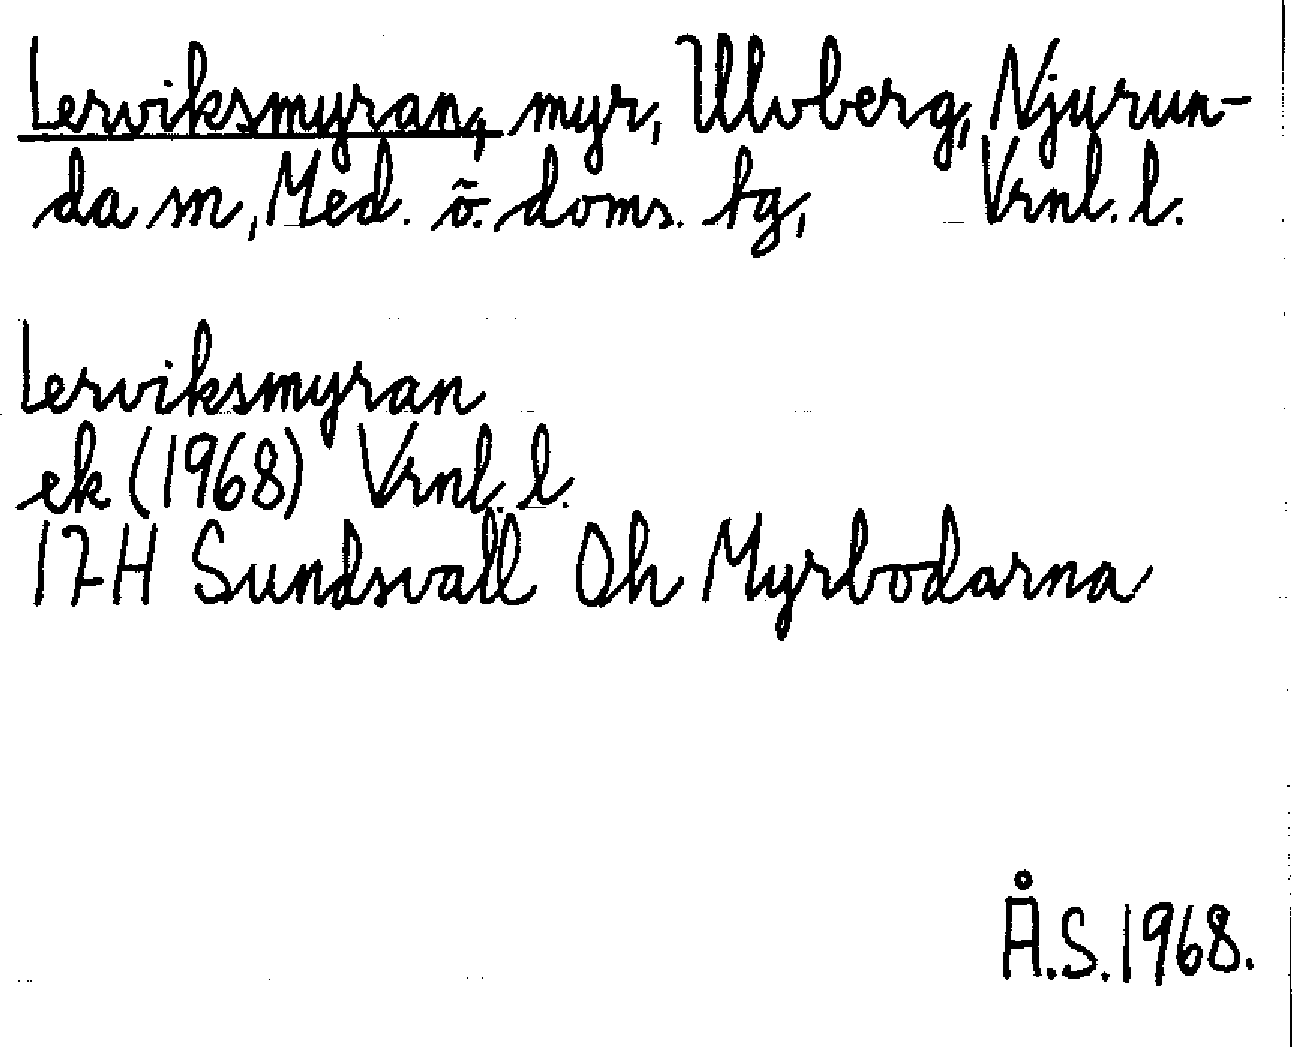 Lerviksmyran, myr, Ulvberg, Njurun-
da sn, Med. ö. doms. tg, Vrnl. l.
Lerviksmyran
ek (1968) Vrnl. l.
17H Sundsvall 0h Myrbodarna
Å.S. 1968.